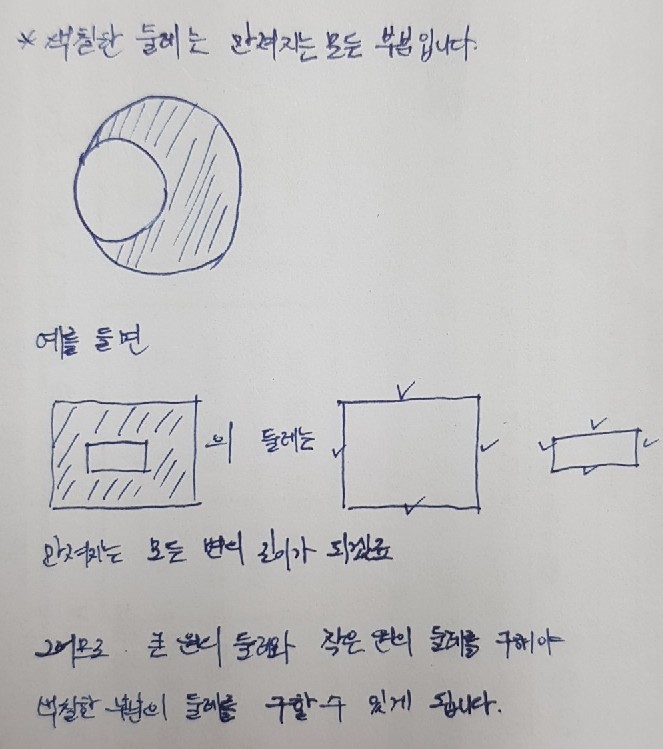 * 색칠한 둘레는 만져지는 모든 부분입니다.
예를 들면
의 둘레는
만져지는 모든 변의 길이가 되겠죠
그러므로 큰 원의 둘레와 작은 원의 둘레를 구해야
색칠한 부분의 둘레를 구할 수 있게 됩니다.